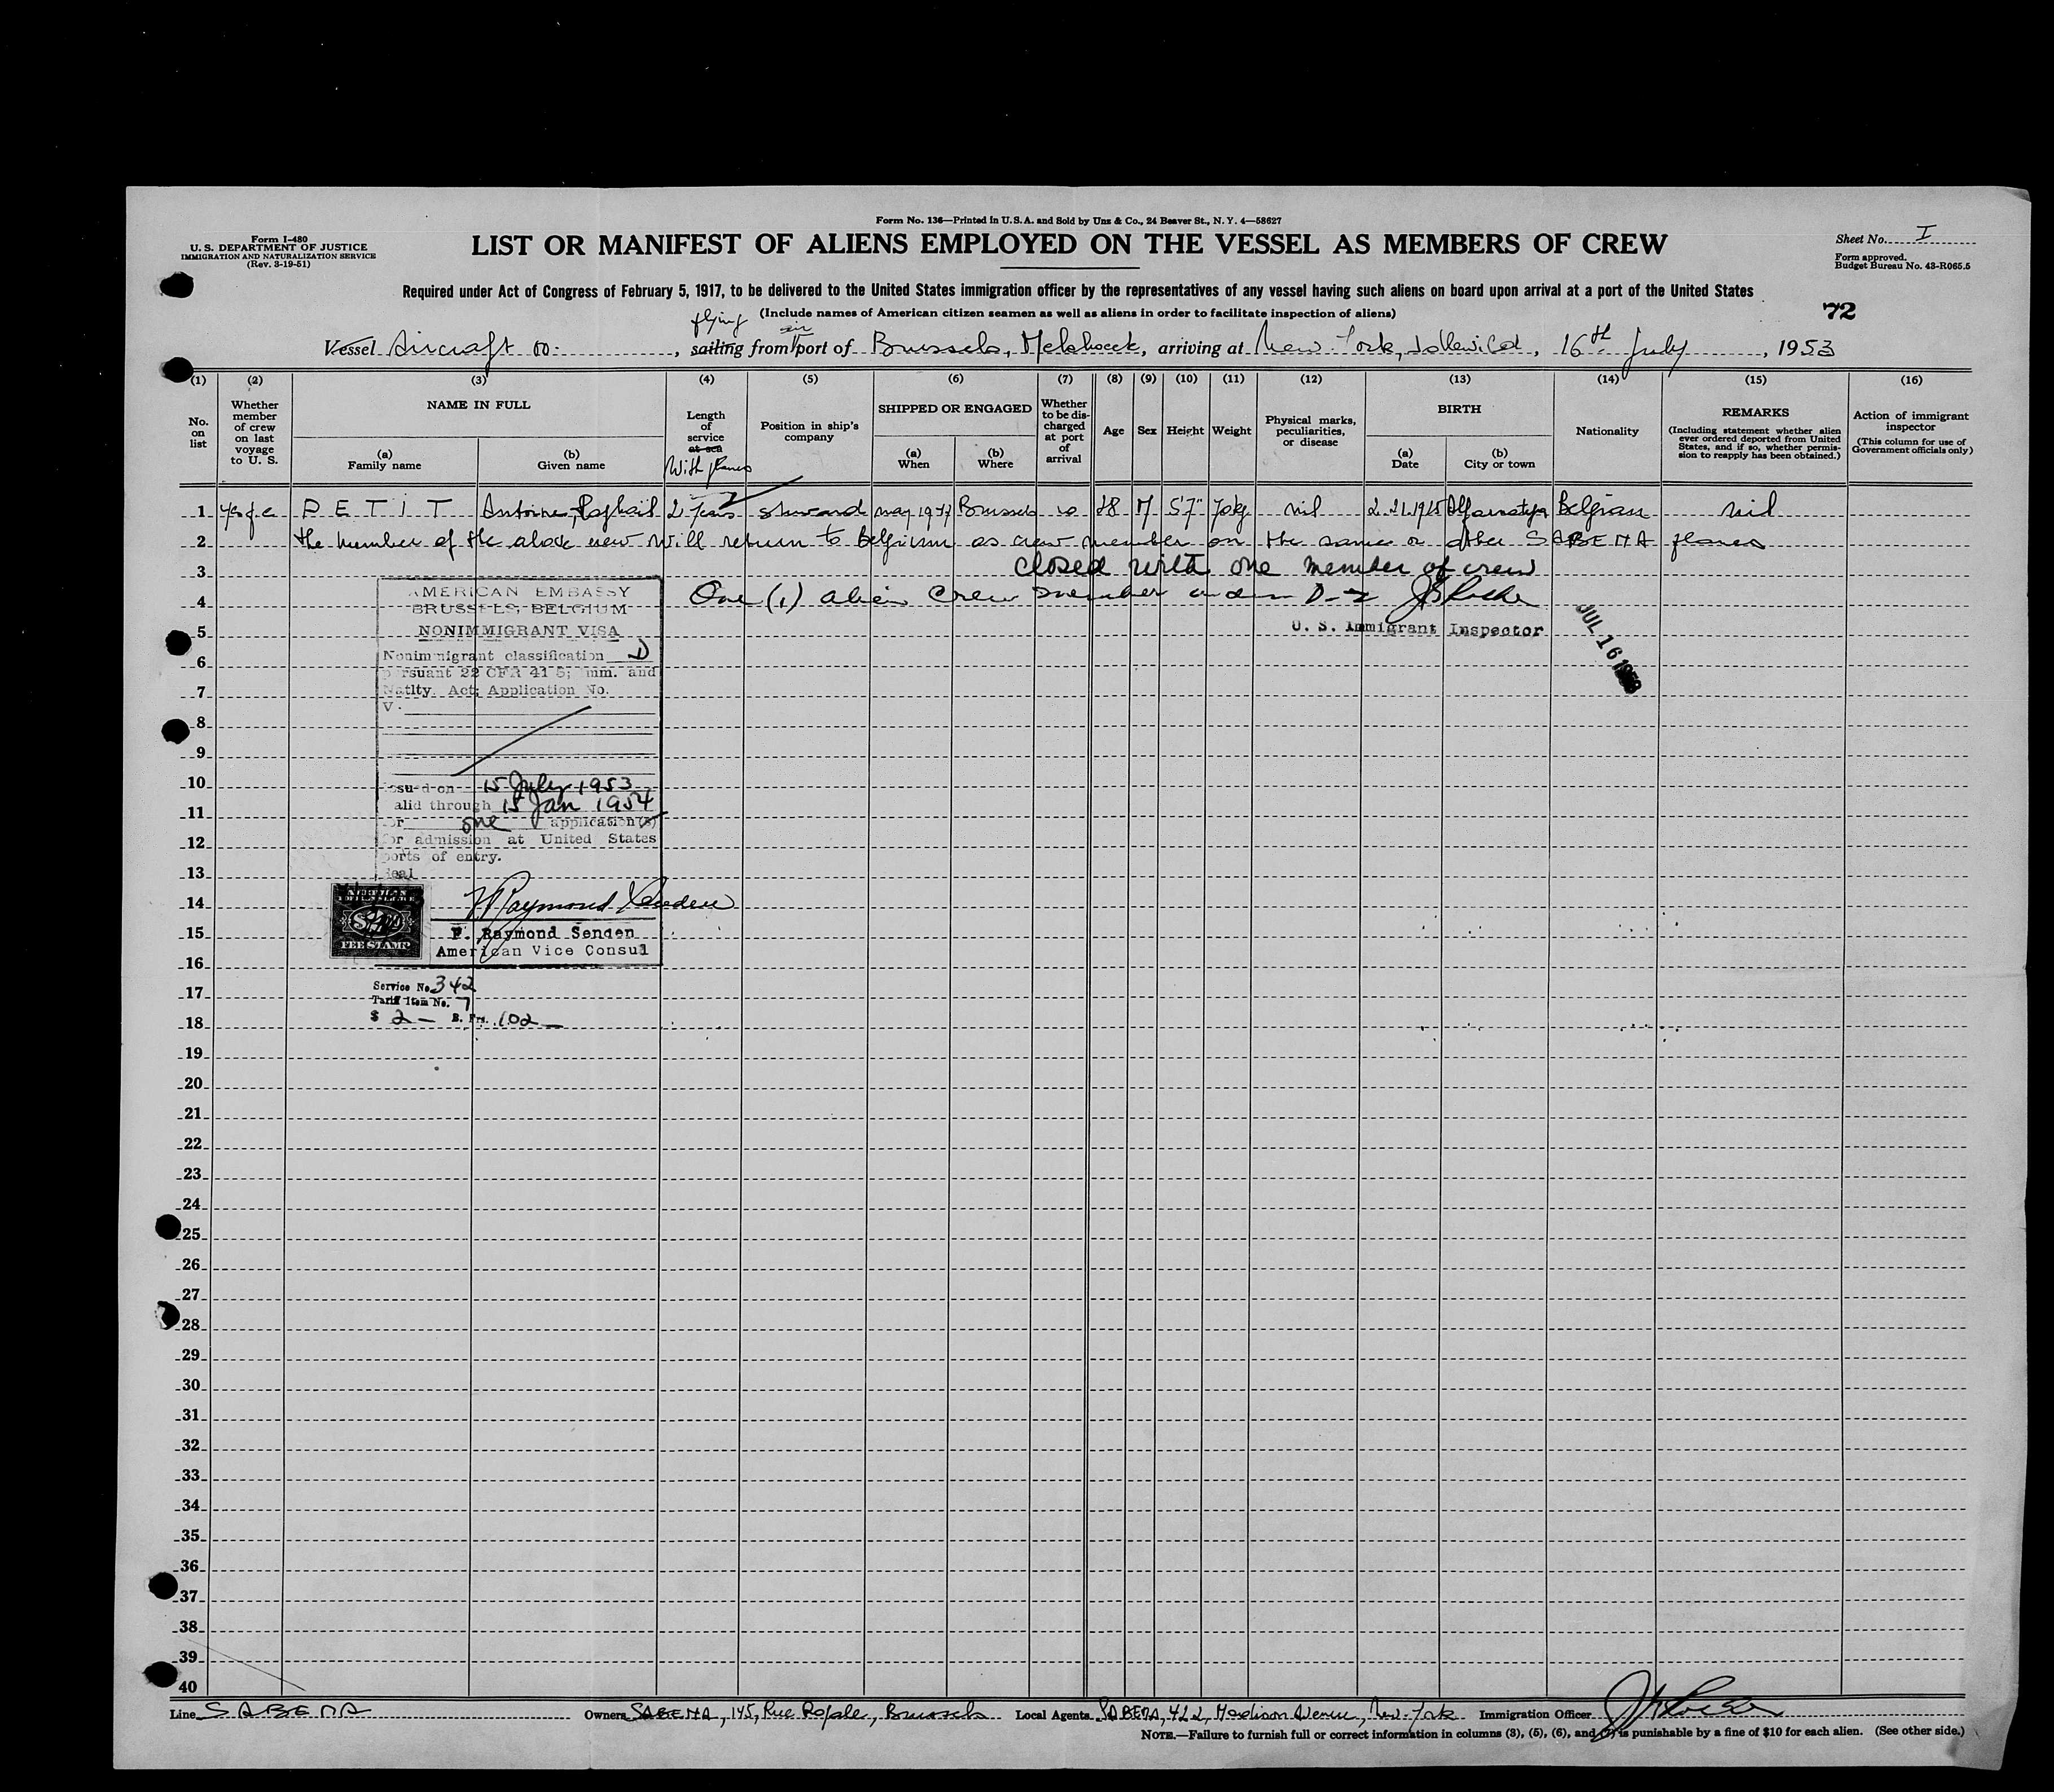 Form No. 136—Printed in U.S.A. and Sold by Unz & Co., 24 Beaver St., N. Y. 4—58627
Form I-480
U. S. DEPARTMENT OF JUSTICE
IMMIGRATION AND NATURALIZATION SERVICE
(Rev. 3-19-51)
LIST OR MANIFEST OF ALIENS EMPLOYED ON THE VESSEL AS MEMBERS OF CREW
Sheet No. I
Form approved.
Budget Bureau No. 43-R065.5
Required under Act of Congress of February 5, 1917, to be delivered to the United States immigration officer by the representatives of any vessel having such aliens on board upon arrival at a port of the United States
(Include names of American citizen seamen as well as aliens in order to facilitate inspection of aliens)
72
flying air
Vessel Aircraft OO- , sailing from port of Brussels, Melsbroeck, arriving at New-York, Idlewild, 16th July , 1953
(1) (2) (3) (4) (5) (6) (7) (8) (9) (10) (11) (12) (13) (14) (15) (16)
No. on list
Whether member of crew on last voyage to U. S.
NAME IN FULL
(a) Family name
(b) Given name
Length of service at sea
With planes
Position in ship's company
SHIPPED OR ENGAGED
(a) When
(b) Where
Whether to be discharged at port of arrival
Age
Sex
Height
Weight
Physical marks, peculiarities, or disease
BIRTH
(a) Date
(b) City or town
Nationality
REMARKS
(Including statement whether alien ever ordered deported from United States, and if so, whether permission to reapply has been obtained.)
Action of immigrant inspector
(This column for use of Government officials only)
1 PETIT Antoine, Raphaël 2 Years steward may 1947 Brussels no 28 M 5'7" 70kg nil 2.21.1925 Belgian nil
2 the member of the above crew will return to Belgium as crew member on the same or other SABENA planes
3 closed with one member of crew
4 One (1) alien Crew member under D-2
U. S. Immigrant Inspector
JUL 16 1953
AMERICAN EMBASSY
BRUSSELS, BELGIUM
NONIMMIGRANT VISA
Nonimmigrant classification D
pursuant 22 CFR 41 5; Imm. and
Natlty. Act; Application No.
V -
Issued on 15 July 1953
Valid through 15 Jan 1954
for one application(s)
for admission at United States
ports of entry.
Seal
F. Raymond Senden
American Vice Consul
AMERICAN
$2
FEE STAMP
Service No. 342
Tariff Item No. 7
$ 2 — B. Frs. 102 —
5
6
7
8
9
10
11
12
13
14
15
16
17
18
19
20
21
22
23
24
25
26
27
28
29
30
31
32
33
34
35
36
37
38
39
40
Line SABENA Owners SABENA, 145, Rue Royale, Brussels Local Agents SABENA, 422, Madison Avenue, New-York Immigration Officer
NOTE.—Failure to furnish full or correct information in columns (3), (5), (6), and (7) is punishable by a fine of $10 for each alien. (See other side.)